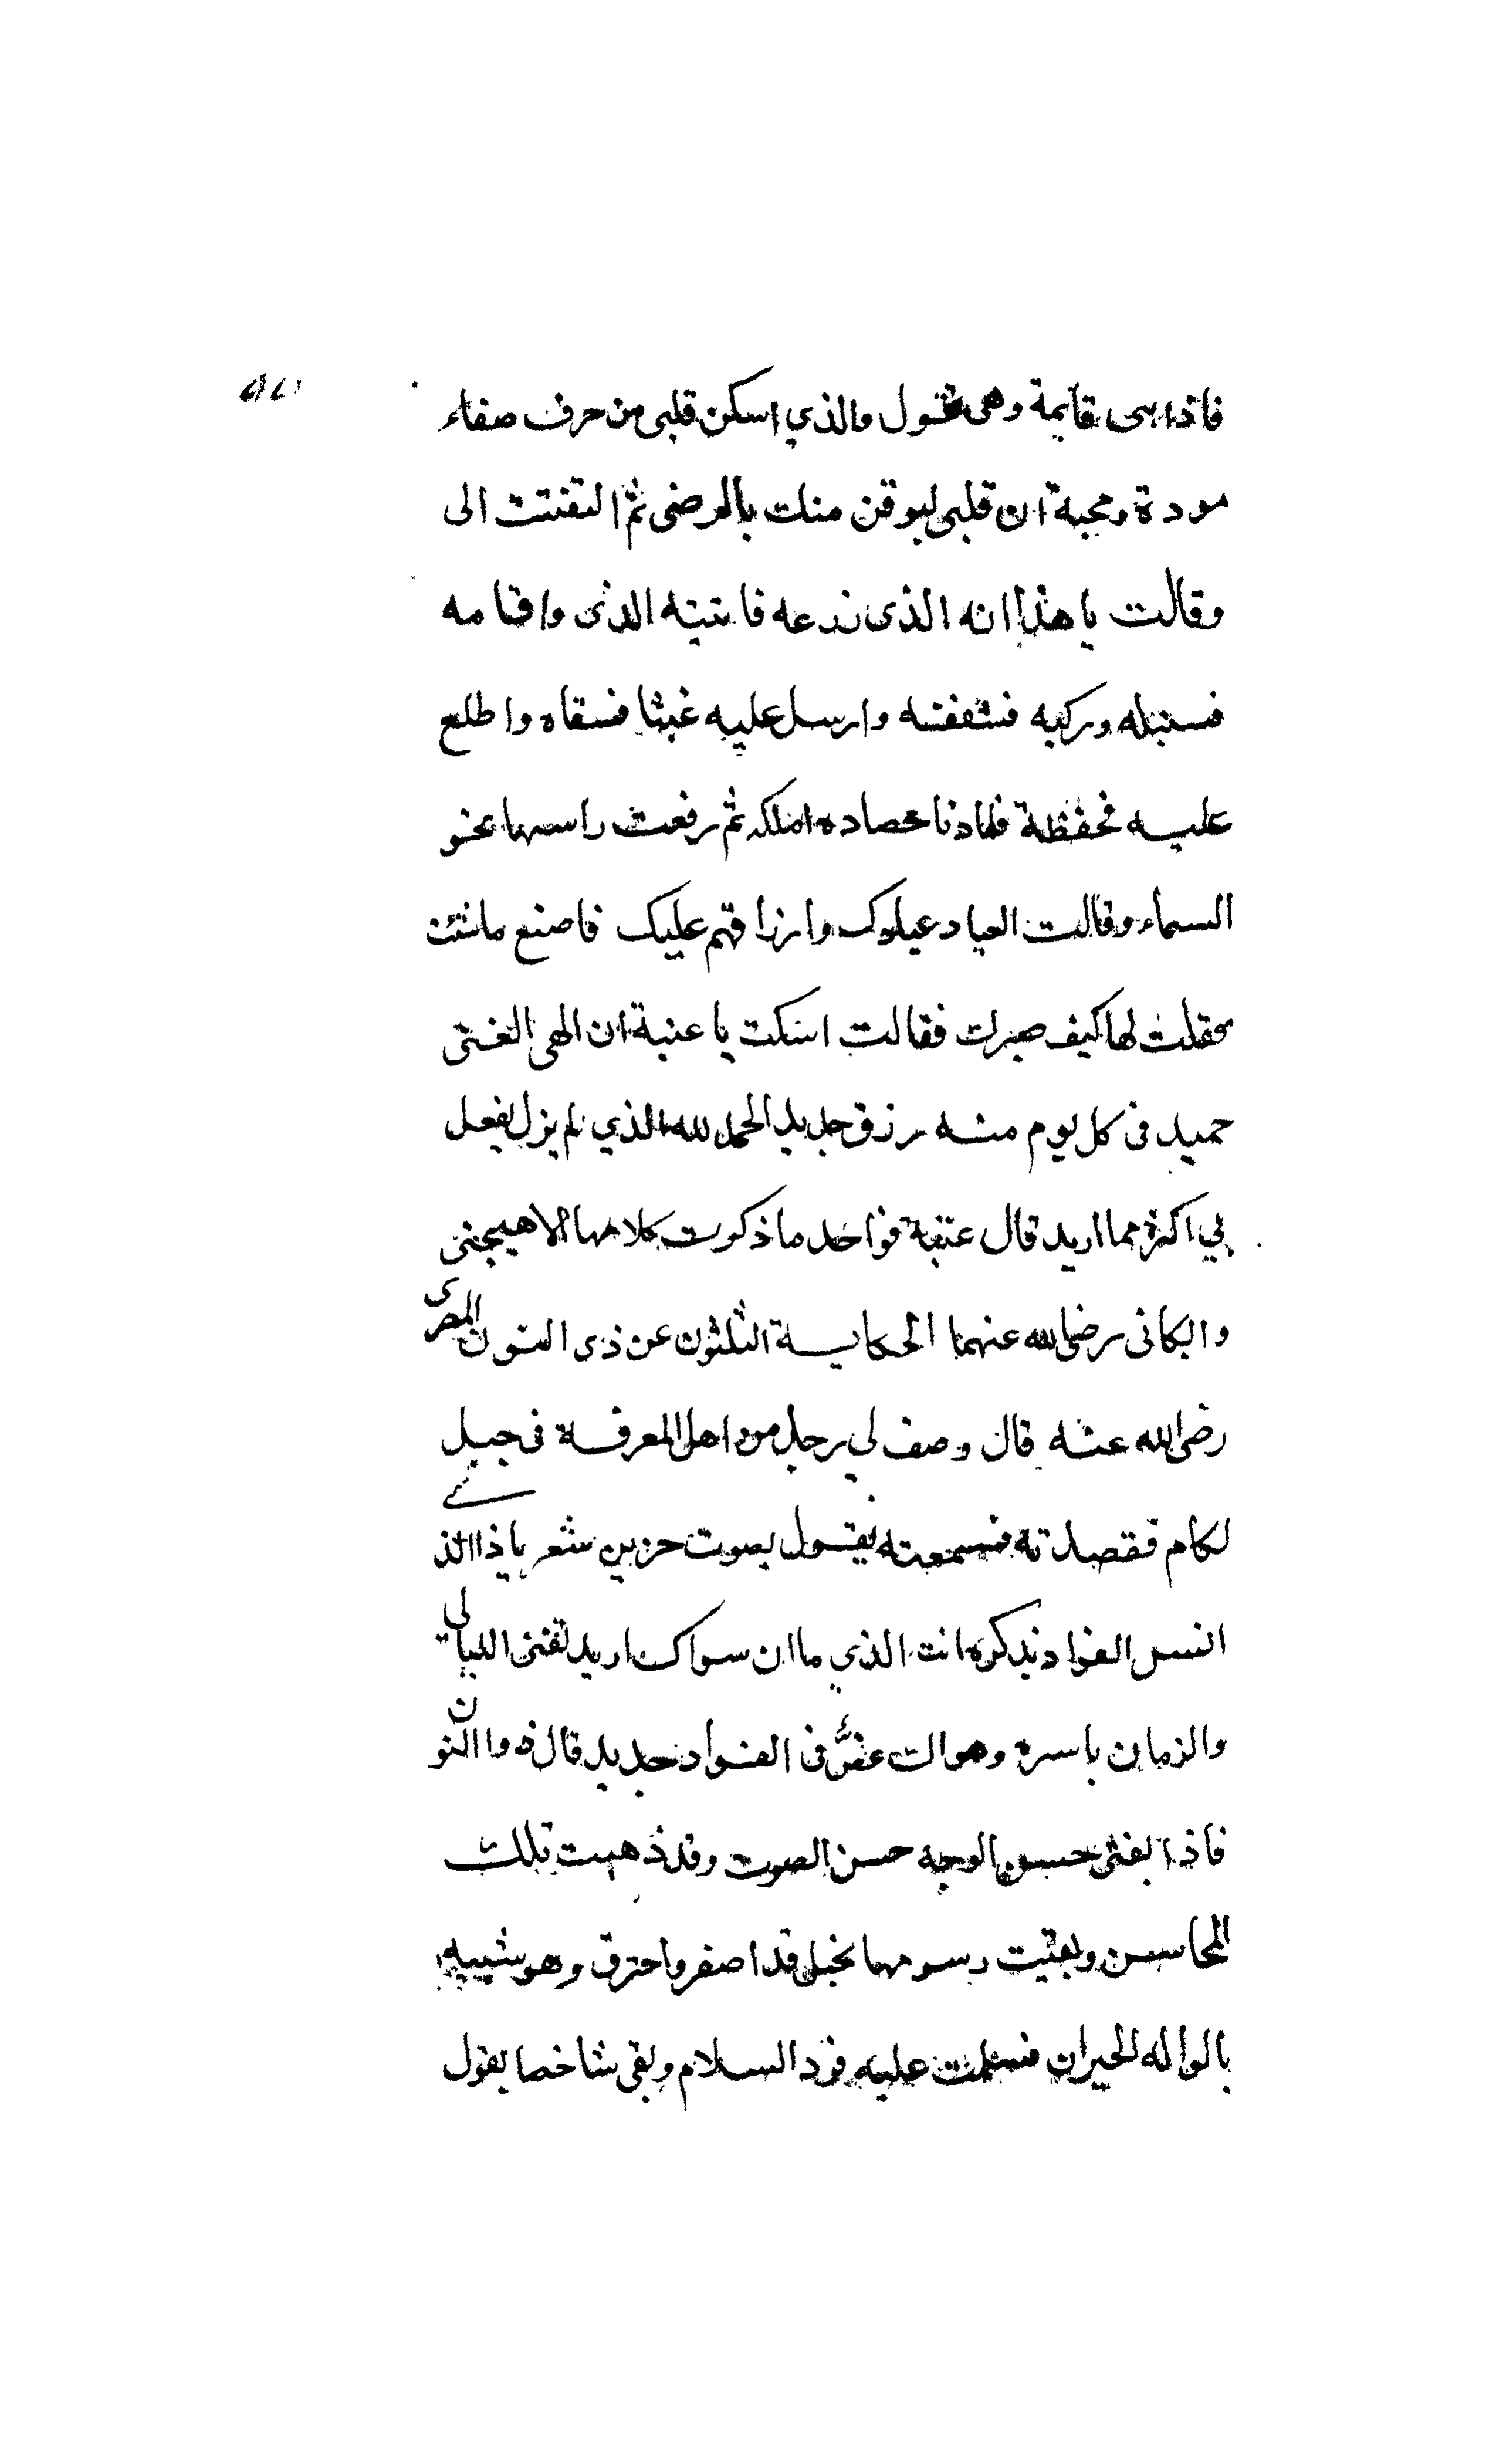 فاذا هى قايمة وهى تقول والذي اسكن قلبى من حرف صفاء
مودة ومحبة ان قلبى ليوقن منك بالرضى ثم التفتت الى
وقالت يا هذا انه الذى زرعه فانبته الذى واقامه
فسنبله وركبه فشففته وارسل عليه غيثا فسقاه واطلع
عليه فحفظة فلما دنا حصاده اهلكه ثم رفعت راسها نحو
السماء وقالت العباد عبادك وارزاقهم عليك فاصنع ماشئت
فقلت لها كيف صبرك فقالت اسكت يا عتبة ان الهى الغنى
حميد فى كل يوم منه رزق جديد الحمد لله الذي لم يزل يفعل
بي اكثر مما اريد قال عتبة فوا حد ما ذكرت كلامها الا هيجنى
وابكانى رضى الله عنهما الحكاية الثلثون عن ذى النون المصرى
رضى الله عنه قال وصف لي رجل من اهل المعرفة فى جبل
لكام فقصدته فسمعته يقول بصوت حزين شعر ياذا الذى
انس الفواد بذكره انت الذي ما ان سواك اريد تفنى الليالى
والزمان باسره وهواك غض فى الفواد جديد قال ذوا النون
فاذا بفتى حسن الوجه حسن الصوت وقد ذهبت تلك
المحاسن وبقيت رسومها نحيل قد اصفر واحترق وهو شبيه
بالواله الحيران فسلمت عليه فرد السلام وبقى شاخصا يقول